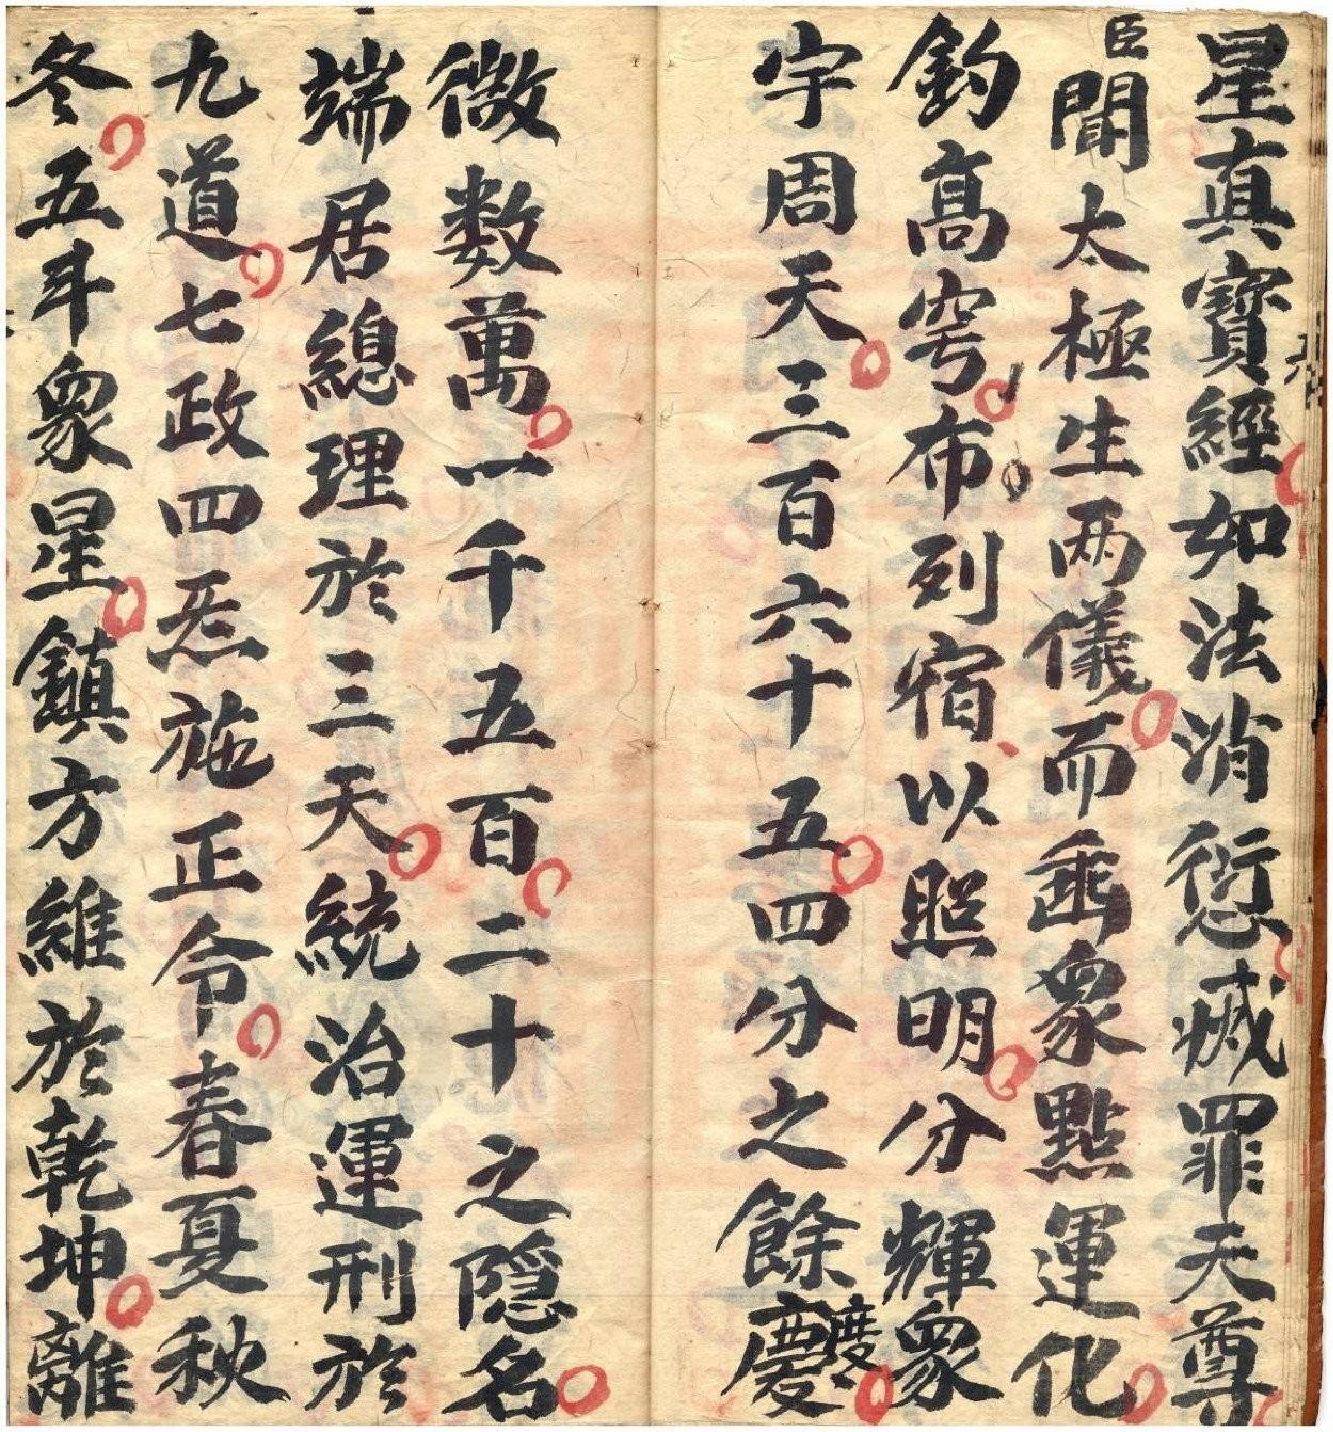 星真寳經如法消愆滅罪天尊
臣聞太極生两儀而垂象點運化
鈞高穹布列宿以照明分輝衆
宇周天三百六十五四分之餘慶度
微数萬一千五百二十之隱名
端居總理於三天統治運刑於
九道七政四炁施正令春夏秋
冬五斗衆星鎮方維於乾坤離